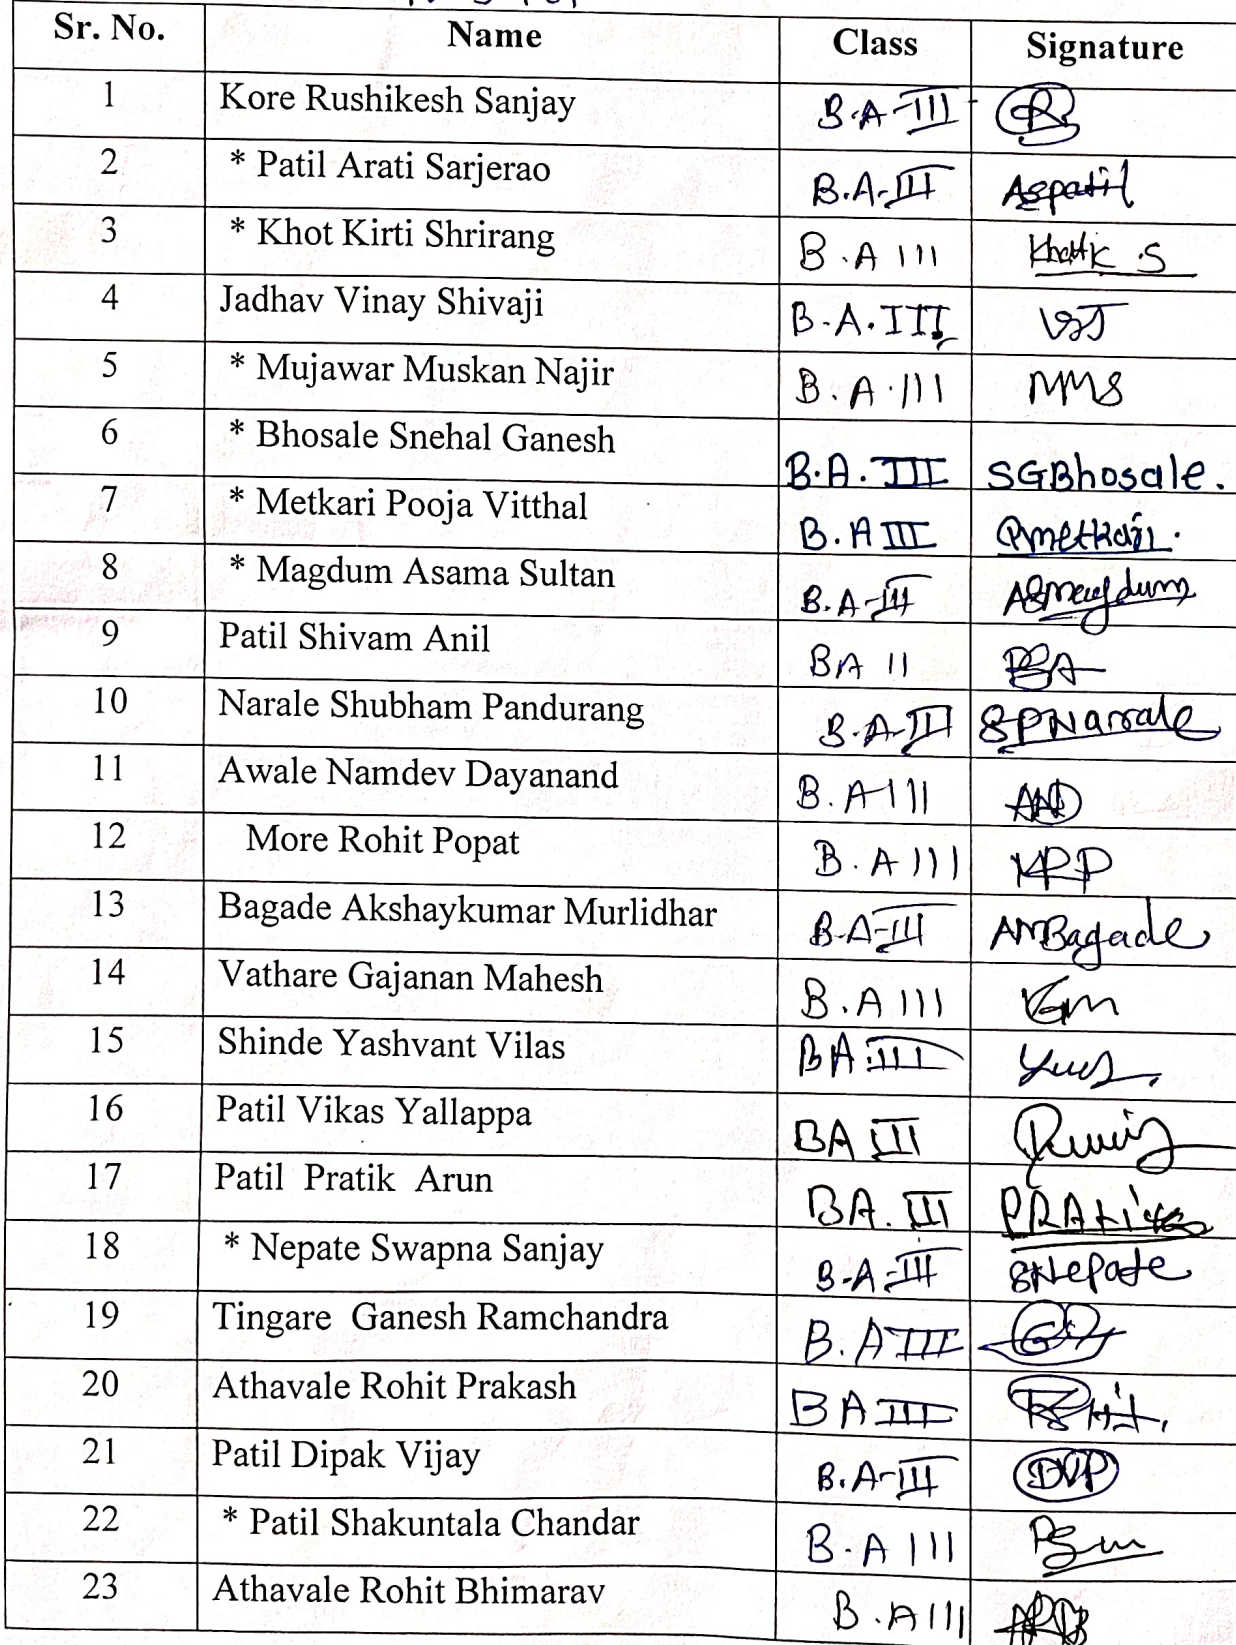 Sr. No. Name Class Signature
1 Kore Rushikesh Sanjay B.A-III
2 * Patil Arati Sarjerao B.A-III Aspatil
3 * Khot Kirti Shrirang B.A III Khot K.S
4 Jadhav Vinay Shivaji B.A.III VSJ
5 * Mujawar Muskan Najir B.A.III MMS
6 * Bhosale Snehal Ganesh B.A.III SGBhosale.
7 * Metkari Pooja Vitthal B.A III
8 * Magdum Asama Sultan B.A-III ASMagdum
9 Patil Shivam Anil BA II PSA
10 Narale Shubham Pandurang B.A-III SPNarale
11 Awale Namdev Dayanand B.A III AND
12 More Rohit Popat B.A III
13 Bagade Akshaykumar Murlidhar B-A-III AMBagade
14 Vathare Gajanan Mahesh B.A III VGM
15 Shinde Yashvant Vilas BA III
16 Patil Vikas Yallappa BA III
17 Patil Pratik Arun BA. III
18 * Nepate Swapna Sanjay B-A-III SNepate
19 Tingare Ganesh Ramchandra B.A III
20 Athavale Rohit Prakash BA III
21 Patil Dipak Vijay B.A-III DVP
22 * Patil Shakuntala Chandar B.A III
23 Athavale Rohit Bhimarav B.A III